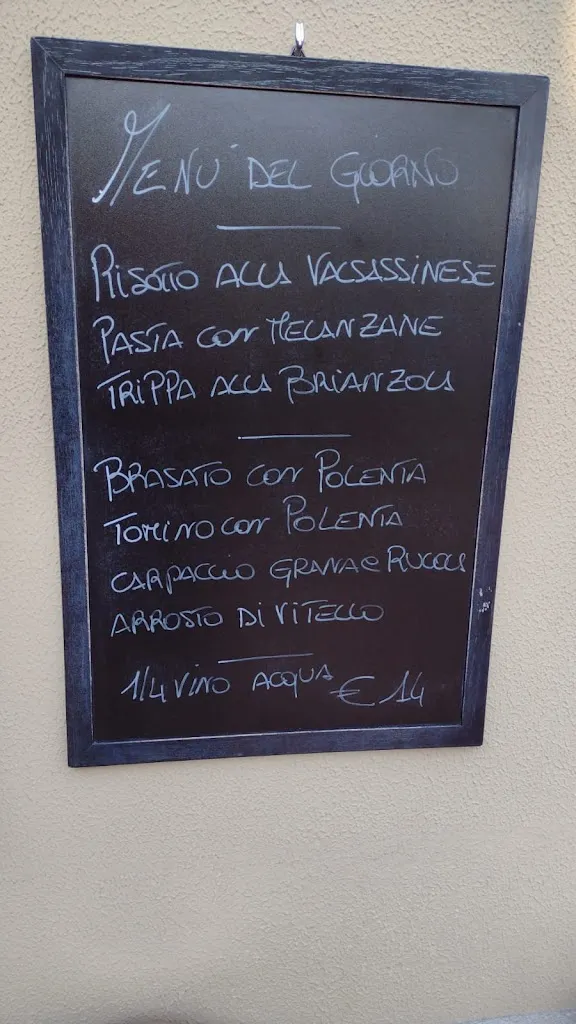 MENU' DEL GIORNO
RISOTTO ALLA VALSASSINESE
PASTA CON MELANZANE
TRIPPA ALLA BRIANZOLA
BRASATO CON POLENTA
TOMINO CON POLENTA
CARPACCIO GRANA e RUCOLA
ARROSTO DI VITELLO
1/4 VINO ACQUA € 14